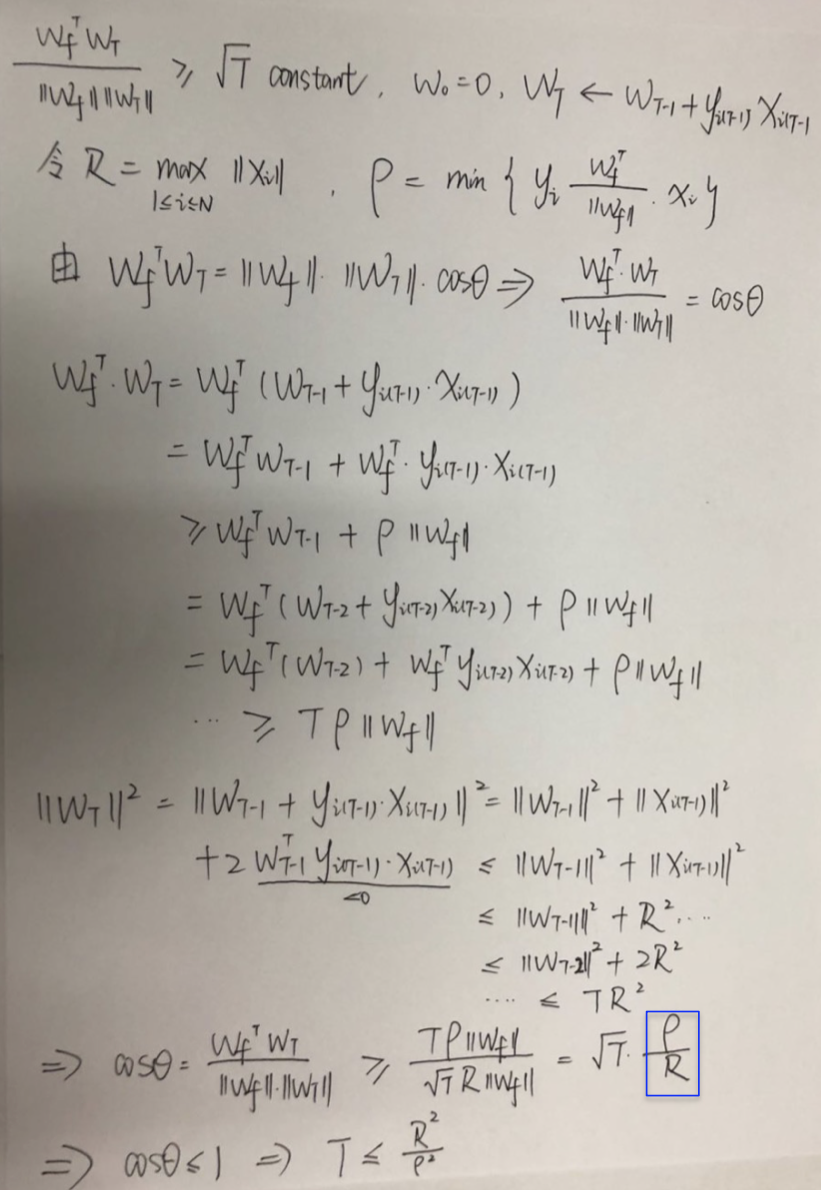 W_f^T W_T / ‖W_f‖ ‖W_T‖ ≥ √T constant, W_0 = 0, W_T ← W_{T-1} + y_{i(T-1)} X_{i(T-1
令 R = max_{1≤i≤N} ‖X_i‖ , ρ = min { y_i W_f^T / ‖W_f‖ · x_i }
由 W_f^T W_T = ‖W_f‖ · ‖W_T‖ · cosθ ⇒ W_f^T · W_T / ‖W_f‖·‖W_T‖ = cosθ
W_f^T · W_T = W_f^T (W_{T-1} + y_{i(T-1)} · X_{i(T-1)})
= W_f^T W_{T-1} + W_f^T · y_{i(T-1)} · X_{i(T-1)}
≥ W_f^T W_{T-1} + ρ ‖W_f‖
= W_f^T (W_{T-2} + y_{i(T-2)} X_{i(T-2)}) + ρ ‖W_f‖
= W_f^T (W_{T-2}) + W_f^T y_{i(T-2)} X_{i(T-2)} + ρ ‖W_f‖
... ≥ T ρ ‖W_f‖
‖W_T‖² = ‖W_{T-1} + y_{i(T-1)} · X_{i(T-1)}‖² = ‖W_{T-1}‖² + ‖X_{i(T-1)}‖²
+ 2 W_{T-1}^T y_{i(T-1)} · X_{i(T-1)} ≤ ‖W_{T-1}‖² + ‖X_{i(T-1)}‖²
<0
≤ ‖W_{T-1}‖² + R² ...
≤ ‖W_{T-2}‖² + 2R²
.... ≤ TR²
⇒ cosθ = W_f^T W_T / ‖W_f‖·‖W_T‖ ≥ Tρ‖W_f‖ / √T R ‖W_f‖ = √T · ρ / R
⇒ cosθ ≤ 1 ⇒ T ≤ R² / ρ²